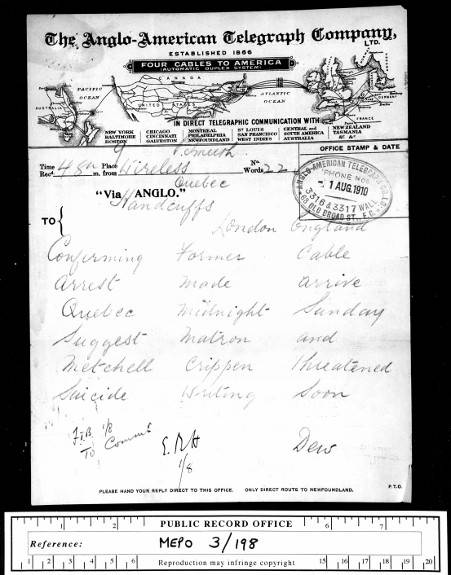 The Anglo-American Telegraph Company,
LTD.
ESTABLISHED 1866
FOUR CABLES TO AMERICA
(AUTOMATIC DUPLEX SYSTEM)
CANADA
PACIFIC
OCEAN
UNITED STATES
ATLANTIC
OCEAN
AUSTRALIA
FRANCE
IN DIRECT TELEGRAPHIC COMMUNICATION WITH
NEW YORK
BALTIMORE
BOSTON
CHICAGO
CINCINNATI
GALVESTON
MONTREAL
PHILADELPHIA
NEWFOUNDLAND
ST LOUIS
SAN FRANCISCO
WEST INDIES
CENTRAL and
SOUTH AMERICA
AUSTRALIA
NEW ZEALAND
TASMANIA
&c &c
OFFICE STAMP & DATE
Time Recd m. Place from Wireless No Words 22
Quebec
"Via ANGLO."
ANGLO-AMERICAN TELEGRAPH
1 AUG. 1910
3316 & 3317 WALL
OLD BROAD ST., E.C.
TO Handcuffs
London England
Confirming Former Cable
Arrest made arrive
Quebec midnight Sunday
Suggest Matron and
Mitchell Crippen threatened
Suicide Writing Soon
Dew
1/8
TO Commr
1/8
P.T.O.
PLEASE HAND YOUR REPLY DIRECT TO THIS OFFICE. ONLY DIRECT ROUTE TO NEWFOUNDLAND.
PUBLIC RECORD OFFICE
Reference: MEPO 3/198
Reproduction may infringe copyright